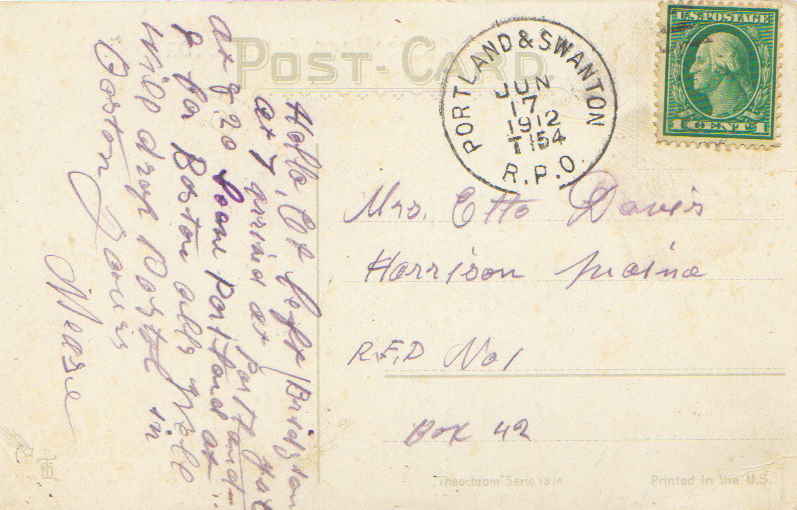 POST-CARD
PORTLAND & SWANTON
JUN
17
1912
T 154
R.P.O.
U.S. POSTAGE
1 CENT 1
Hallo, Et left Bridgton
at 7 arrived at Portland
at 8 20 Portland at
for Boston all well
will drop Postal in
Boston
Mrs. Etta Davis
Harrison Maine
R.F.D No 1
Box 42
"Theochrom" Serie
Printed in the U.S.